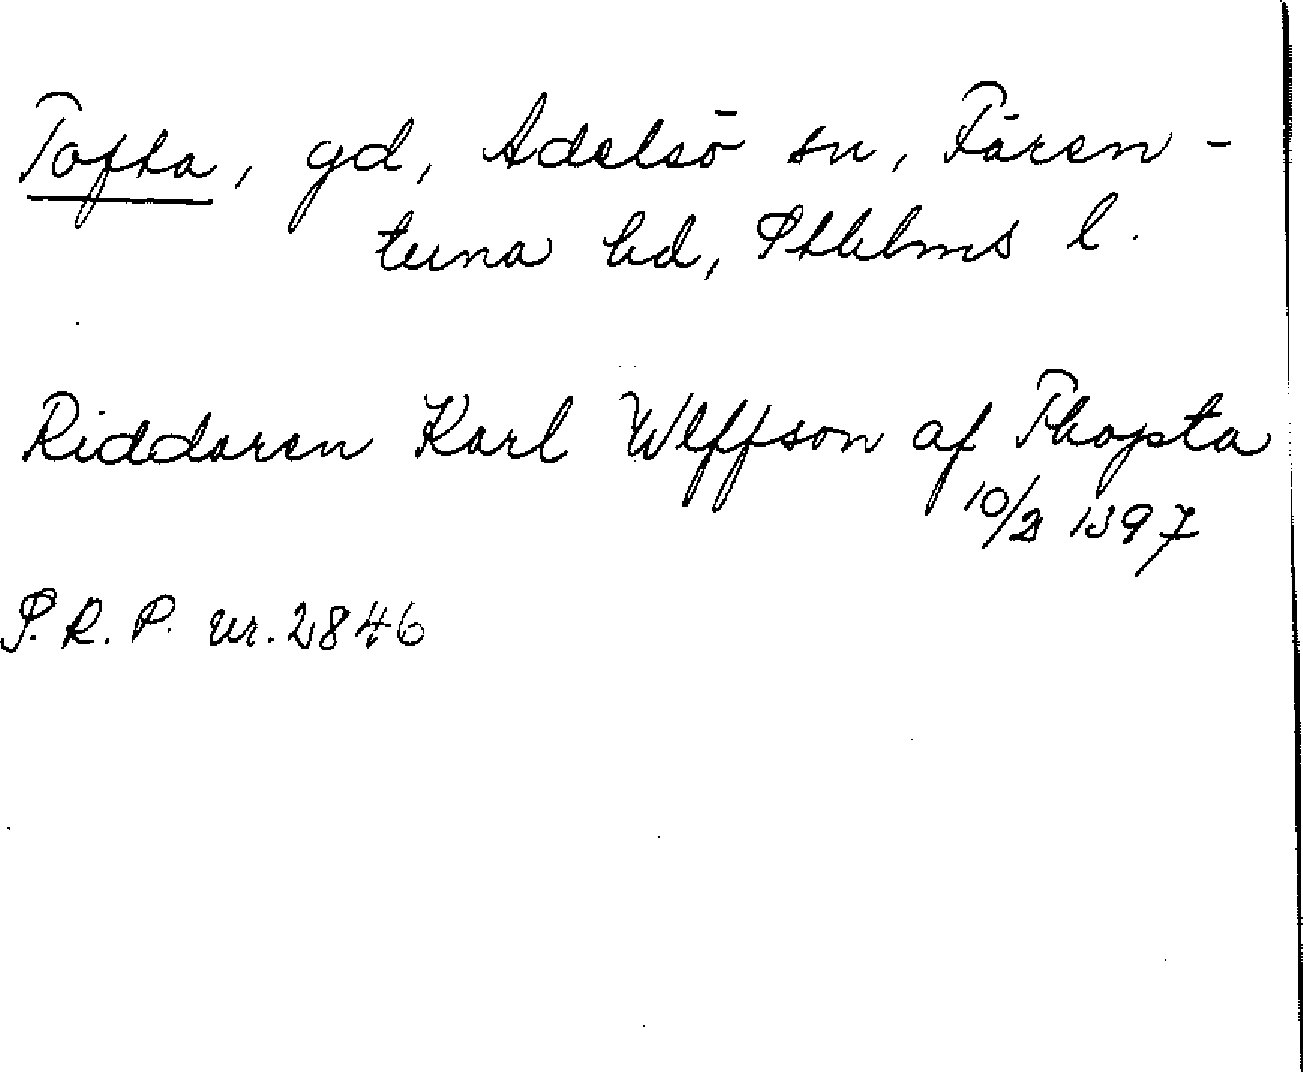 Tofta, gd, Adelsö sn, Fären-
tuna hd, Sthlms l.
Riddaren Karl Wlffson af Thopta
10/2 1397
S.R.P. nr. 2846